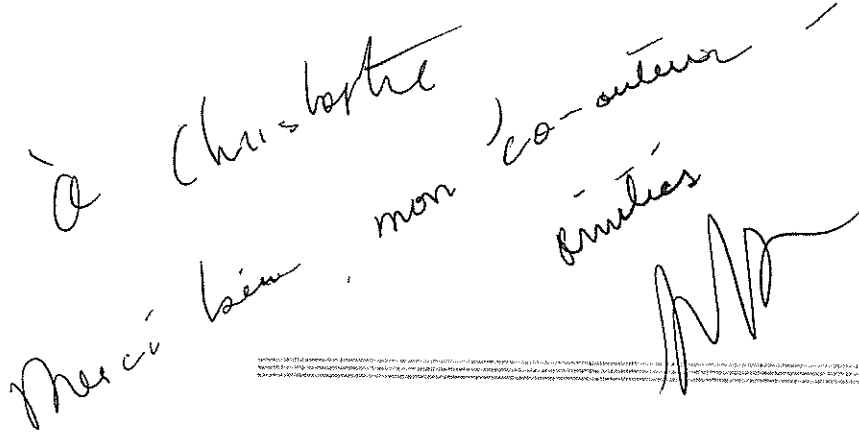 à Christophe
Merci bien, mon co-auteur -
Amitiés